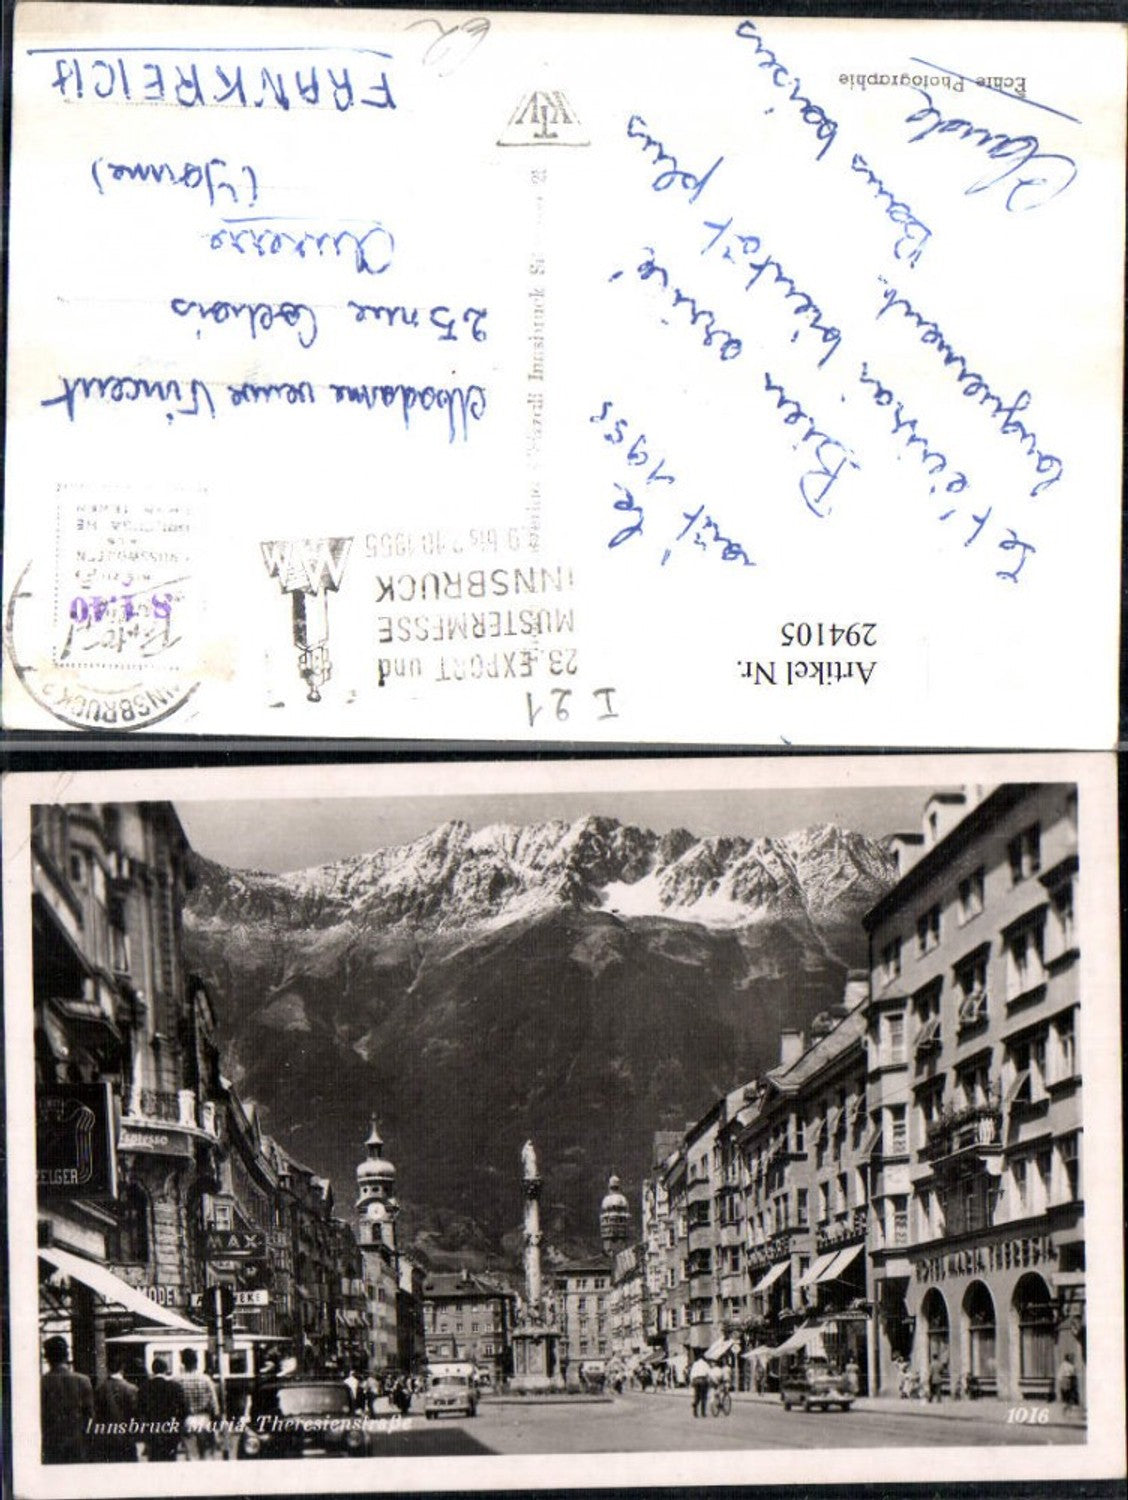 Artikel Nr.
294105
I 21
23. EXPORT und
MUSTERMESSE
INNSBRUCK
bis 2.10.1955
INNSBRUCK 2
S 1.40
Le
août 1955
Bien arrivé
Je t'écrirai bientôt plus
longuement. Bons baisers
Claude
Madame veuve Vincent
25 rue Cochois
Auxerre
(Yonne)
FRANKREICH
Innsbruck
Echte Photographie
ELGER
Espresso
MAX
MODE
Innsbruck Maria Theresienstraße
1016